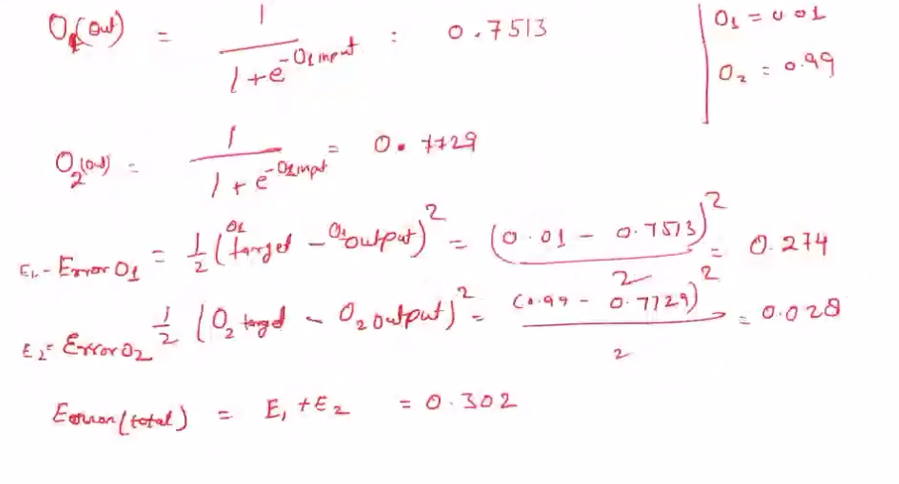 O₁(out) = 1 / 1 + e^-O₁ input : 0.7513
O₁ = 0.01
O₂ = 0.99
O₂(out) = 1 / 1 + e^-O₂ input = 0.7729
E₁ - Error O₁ = 1/2 (O₁ target - O₁ output)² = (0.01 - 0.7513)² / 2 = 0.274
E₂ = Error O₂ 1/2 (O₂ target - O₂ output)² = (0.99 - 0.7729)² / 2 = 0.028
(total) = E₁ + E₂ = 0.302